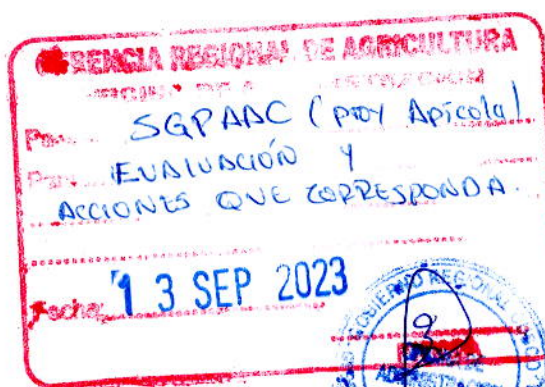 GERENCIA REGIONAL DE AGRICULTURA
Para: SGPAAC (proy Apícola)
Para: EVALUACIÓN Y
ACCIONES QUE CORRESPONDA.
Fecha: 13 SEP 2023
GOBIERNO REGIONAL